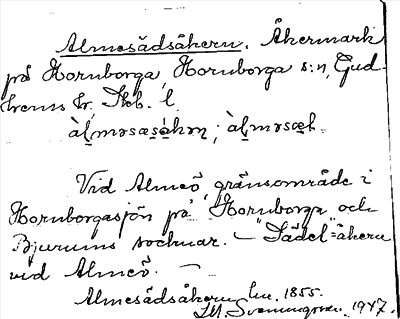 Almesädsåkern. Åkermark
på Hornborga, Hornborga s:n, Gud-
hems hr. Skb. l.
Vid Almeö gränsområde i
Hornborgasjön på Hornborga och
Bjurums socknar. – "Sädel"-åkern
vid Almeö. –
Almesädsåkern lm. 1855.
1947.